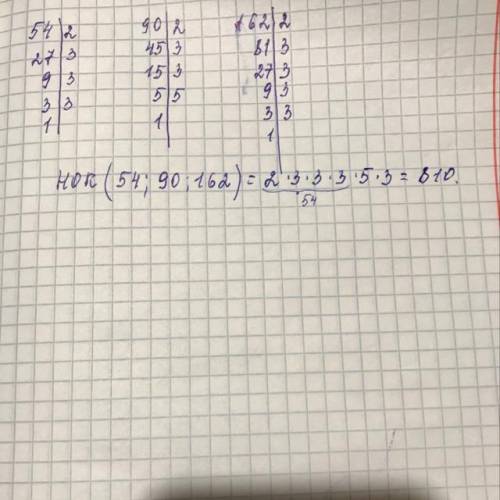 54 | 2   90 | 2   162 | 2
27 | 3   45 | 3   81 | 3
9 | 3   15 | 3   27 | 3
3 | 3   5 | 5   9 | 3
1 |   1 |   3 | 3
1
НОК (54; 90; 162) = 2·3·3·3·5·3 = 810.
54